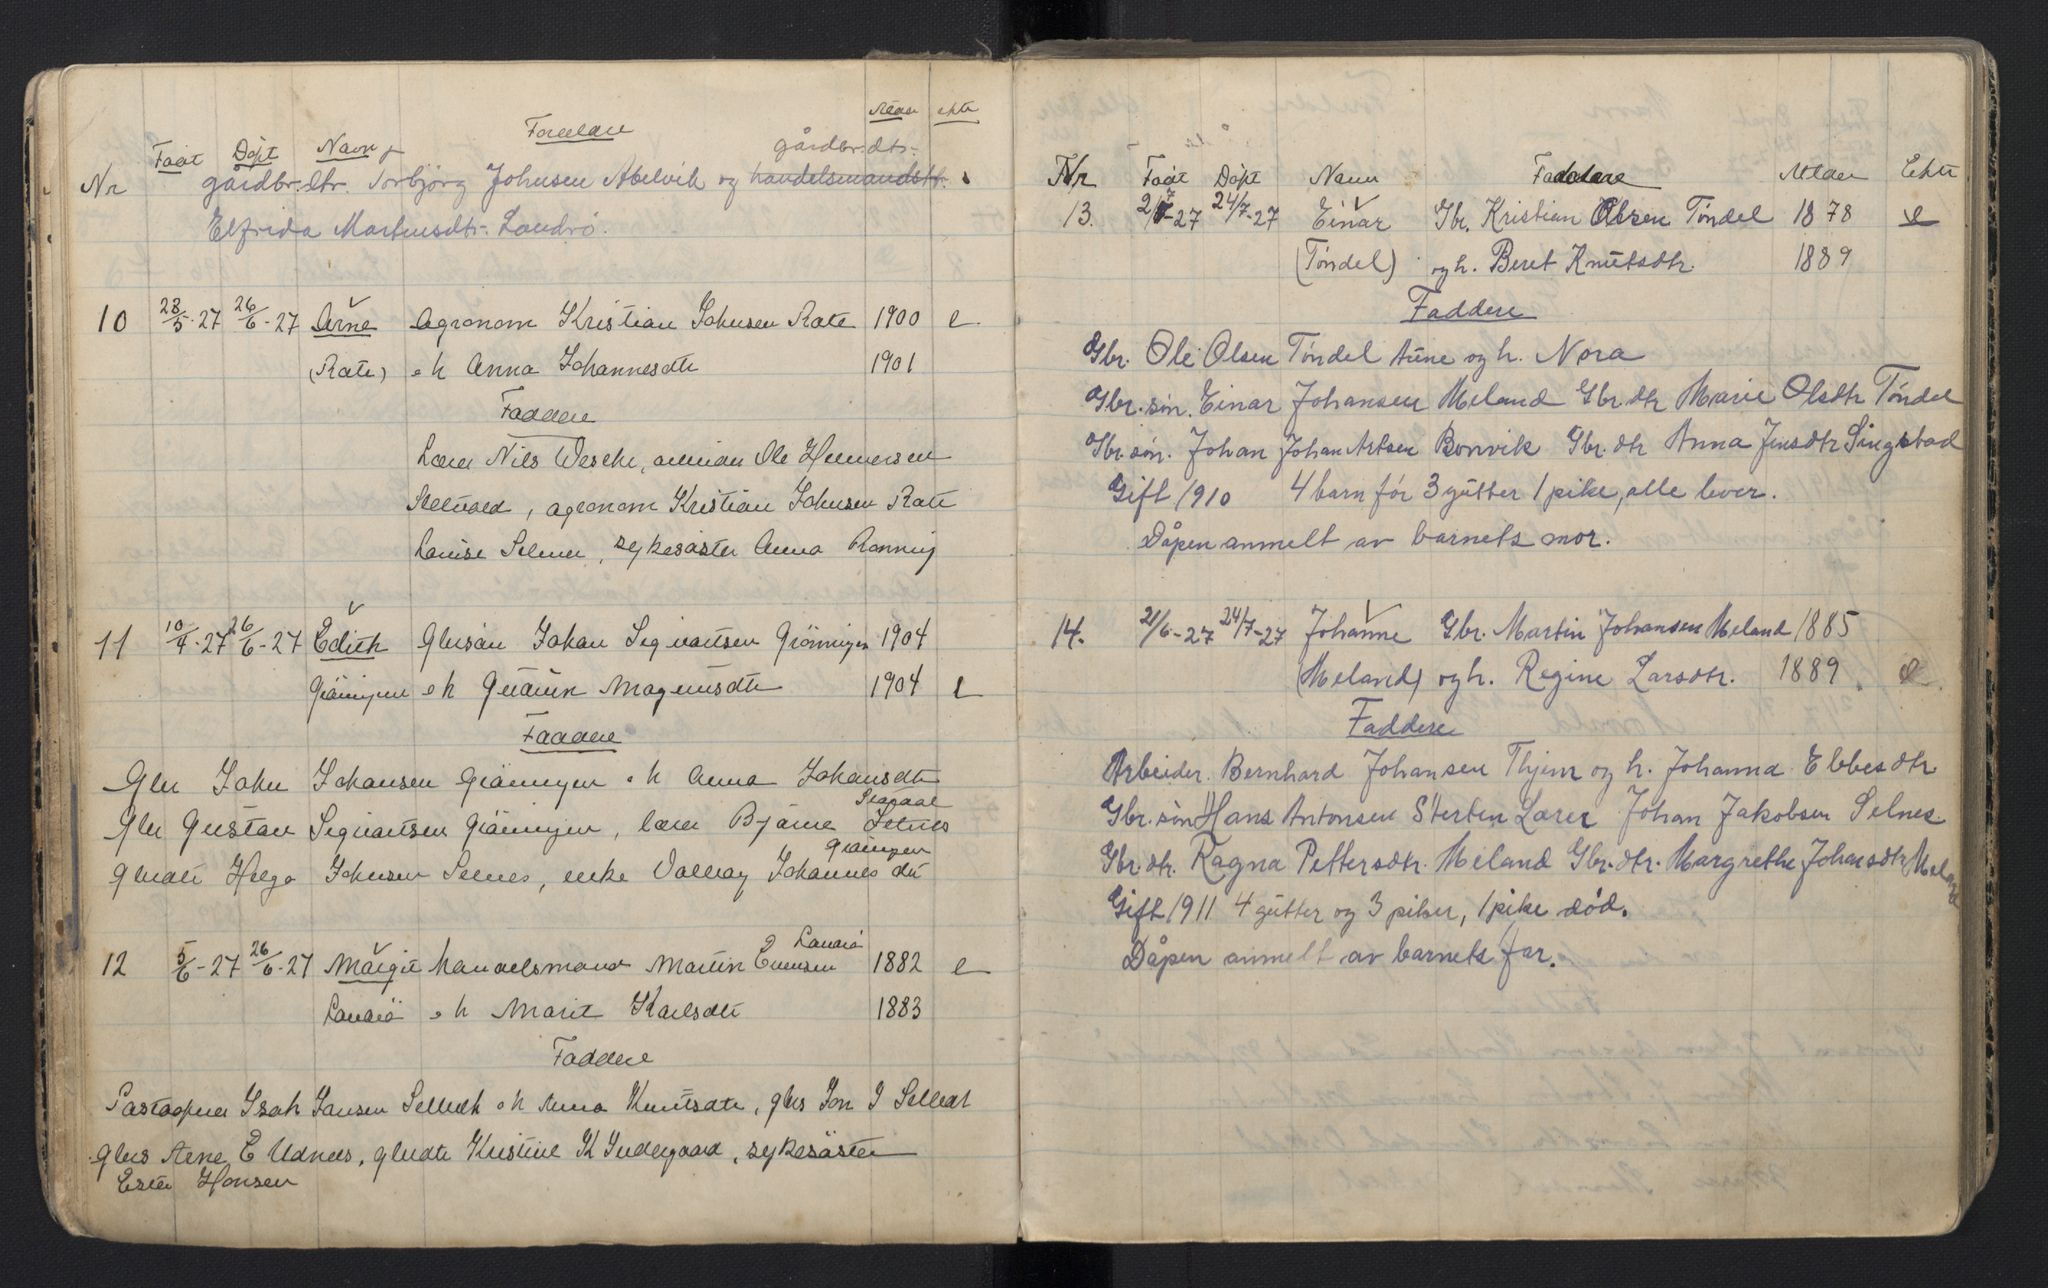 Nr Født Døpt Navn Foreldre Alder ekte
gårdbr. dtr.
gårdbr. dtr. Torbjørg Johnsen Abelvik og handelsmandsfr.
Elfrida Martinsdtr. Landrö.
10 28/5-27 26/6-27 Arne Agronom Kristian Johnsen Rate 1900 e
(Rate) o h Anna Johannesdtr 1901
Faddere
Lærer Nils Wesche, Ole
agronom Kristian Johnsen Rate
Louise Selmer, sykesøster Anna Rønning
11 10/4-27 26/6-27 Edith Gbrsøn Johan Sigvartsen Grönningen 1904
Gröningen o h Gudrun Magnusdtr 1904 e
Faddere
Gbr John Johansen Gröningen o h Anna Johansdtr
Gbr Gustav Sigvartsen Gröningen, lærer Bjarne Setnes
Gröningen
gbrdtr Helga Johnsen Selnes, enke Valborg Johannesdtr
12 5/6-27 26/6-27 Margit Handelsmand Martin Evensen Landrö 1882 e
Landrö o h Marit Karlsdtr 1883
Faddere
Postaapner Isak Jansen o h Anna Knutsdtr, gbrs Jon J
gbrs Arne E Udnes, gbrdtr Kristine K Indergaard, sykesöster
Ester Hansen
Nr Født Døpt Navn Faddere Alder Ekte
13. 2/7-27 24/7-27 Einar Gbr. Kristian Olsen Tøndel 1878 e
(Tøndel) og h. Beret Knutsdtr. 1889
Faddere
Gbr. Ole Olsen Tøndel Aune og h. Nora
Gbr. søn. Einar Johansen Meland Gbr. dtr Marie Olsdtr Tøndel
Gbr. søn. Johan Johan Artsen Bonvik Gbr. dtr Anna Jensdtr Singstad
Gift 1910 4 barn før 3 gutter 1 pike, alle lever.
Dåpen anmelt av barnets mor.
14. 21/6-27 24/7-27 Johanne Gbr. Martin Johansen Meland 1885
(Meland) og h. Regine Larsdtr. 1889. e
Faddere
Arbeider. Bernhard Johansen Thjem og h. Johanna Ebbesdtr
Gbr. søn Hans Antonsen Sterten Lærer Johan Jakobsen Selnes.
Gbr. dtr. Ragna Pettersdtr. Meland Gbr. dtr. Margrethe Johansdtr Meland
Gift 1911 4 gutter og 3 piker, 1 pike død.
Dåpen anmelt av barnets far.